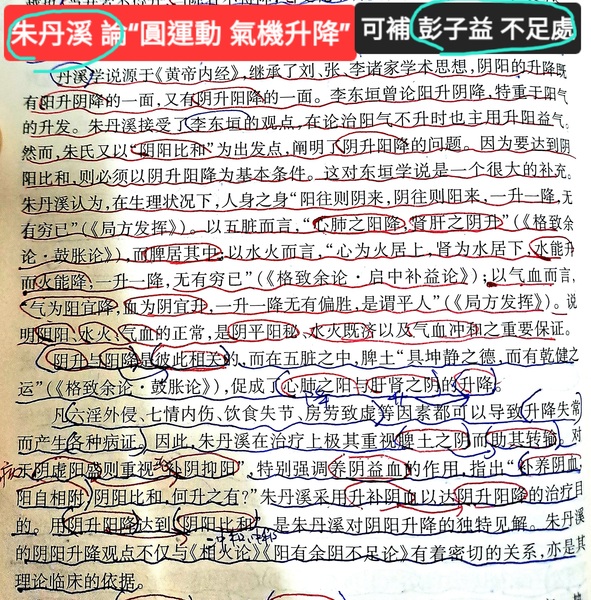 朱丹溪 論“圓運動 氣機升降” 可補 彭子益 不足處
丹溪学说源于《黄帝内经》，继承了刘、张、李诸家学术思想，阴阳的升降既
有阳升阴降的一面，又有阴升阳降的一面。李东垣曾论阳升阴降，特重于阳气
的升发。朱丹溪接受了李东垣的观点，在论治阳气不升时也主用升阳益气。
然而，朱氏又以“阴阳比和”为出发点，阐明了阴升阳降的问题。因为要达到阴
阳比和，则必须以阴升阳降为基本条件。这对东垣学说是一个很大的补充。
朱丹溪认为，在生理状况下，人身之身“阳往则阴来，阴往则阳来，一升一降，无
有穷已”（《局方发挥》）。以五脏而言，“心肺之阳降，肾肝之阴升”（《格致余
论·鼓胀论》），而脾居其中；以水火而言，“心为火居上，肾为水居下，水能升
而火能降，一升一降，无有穷已”（《格致余论·启中补益论》）；以气血而言，
“气为阳宜降，血为阴宜升，一升一降无有偏胜，是谓平人”（《局方发挥》）。说
明阴阳、水火、气血的正常，是阴平阳秘、水火既济以及气血冲和之重要保证。
阴升与阳降是彼此相关的，而在五脏之中，脾土“具坤静之德，而有乾健之
运”（《格致余论·鼓胀论》），促成了心肺之阳与肝肾之阴的升降。
降 升
凡六淫外侵、七情内伤、饮食失节、房劳致虚等因素都可以导致升降失常
而产生各种病证。因此，朱丹溪在治疗上极其重视脾土之阴而助其转输。对
阴虚阳盛则重视“补阴抑阳”，特别强调养阴益血的作用，指出“补养阴血，
阳自相附，阴阳比和，何升之有？”朱丹溪采用升补阴血以达阴升阳降的治疗目
的。用阴升阳降达到“阴阳比和”，是朱丹溪对阴阳升降的独特见解。朱丹溪
的阴阳升降观点不仅与《相火论》《阳有余阴不足论》有着密切的关系，亦是其
理论临床的依据。